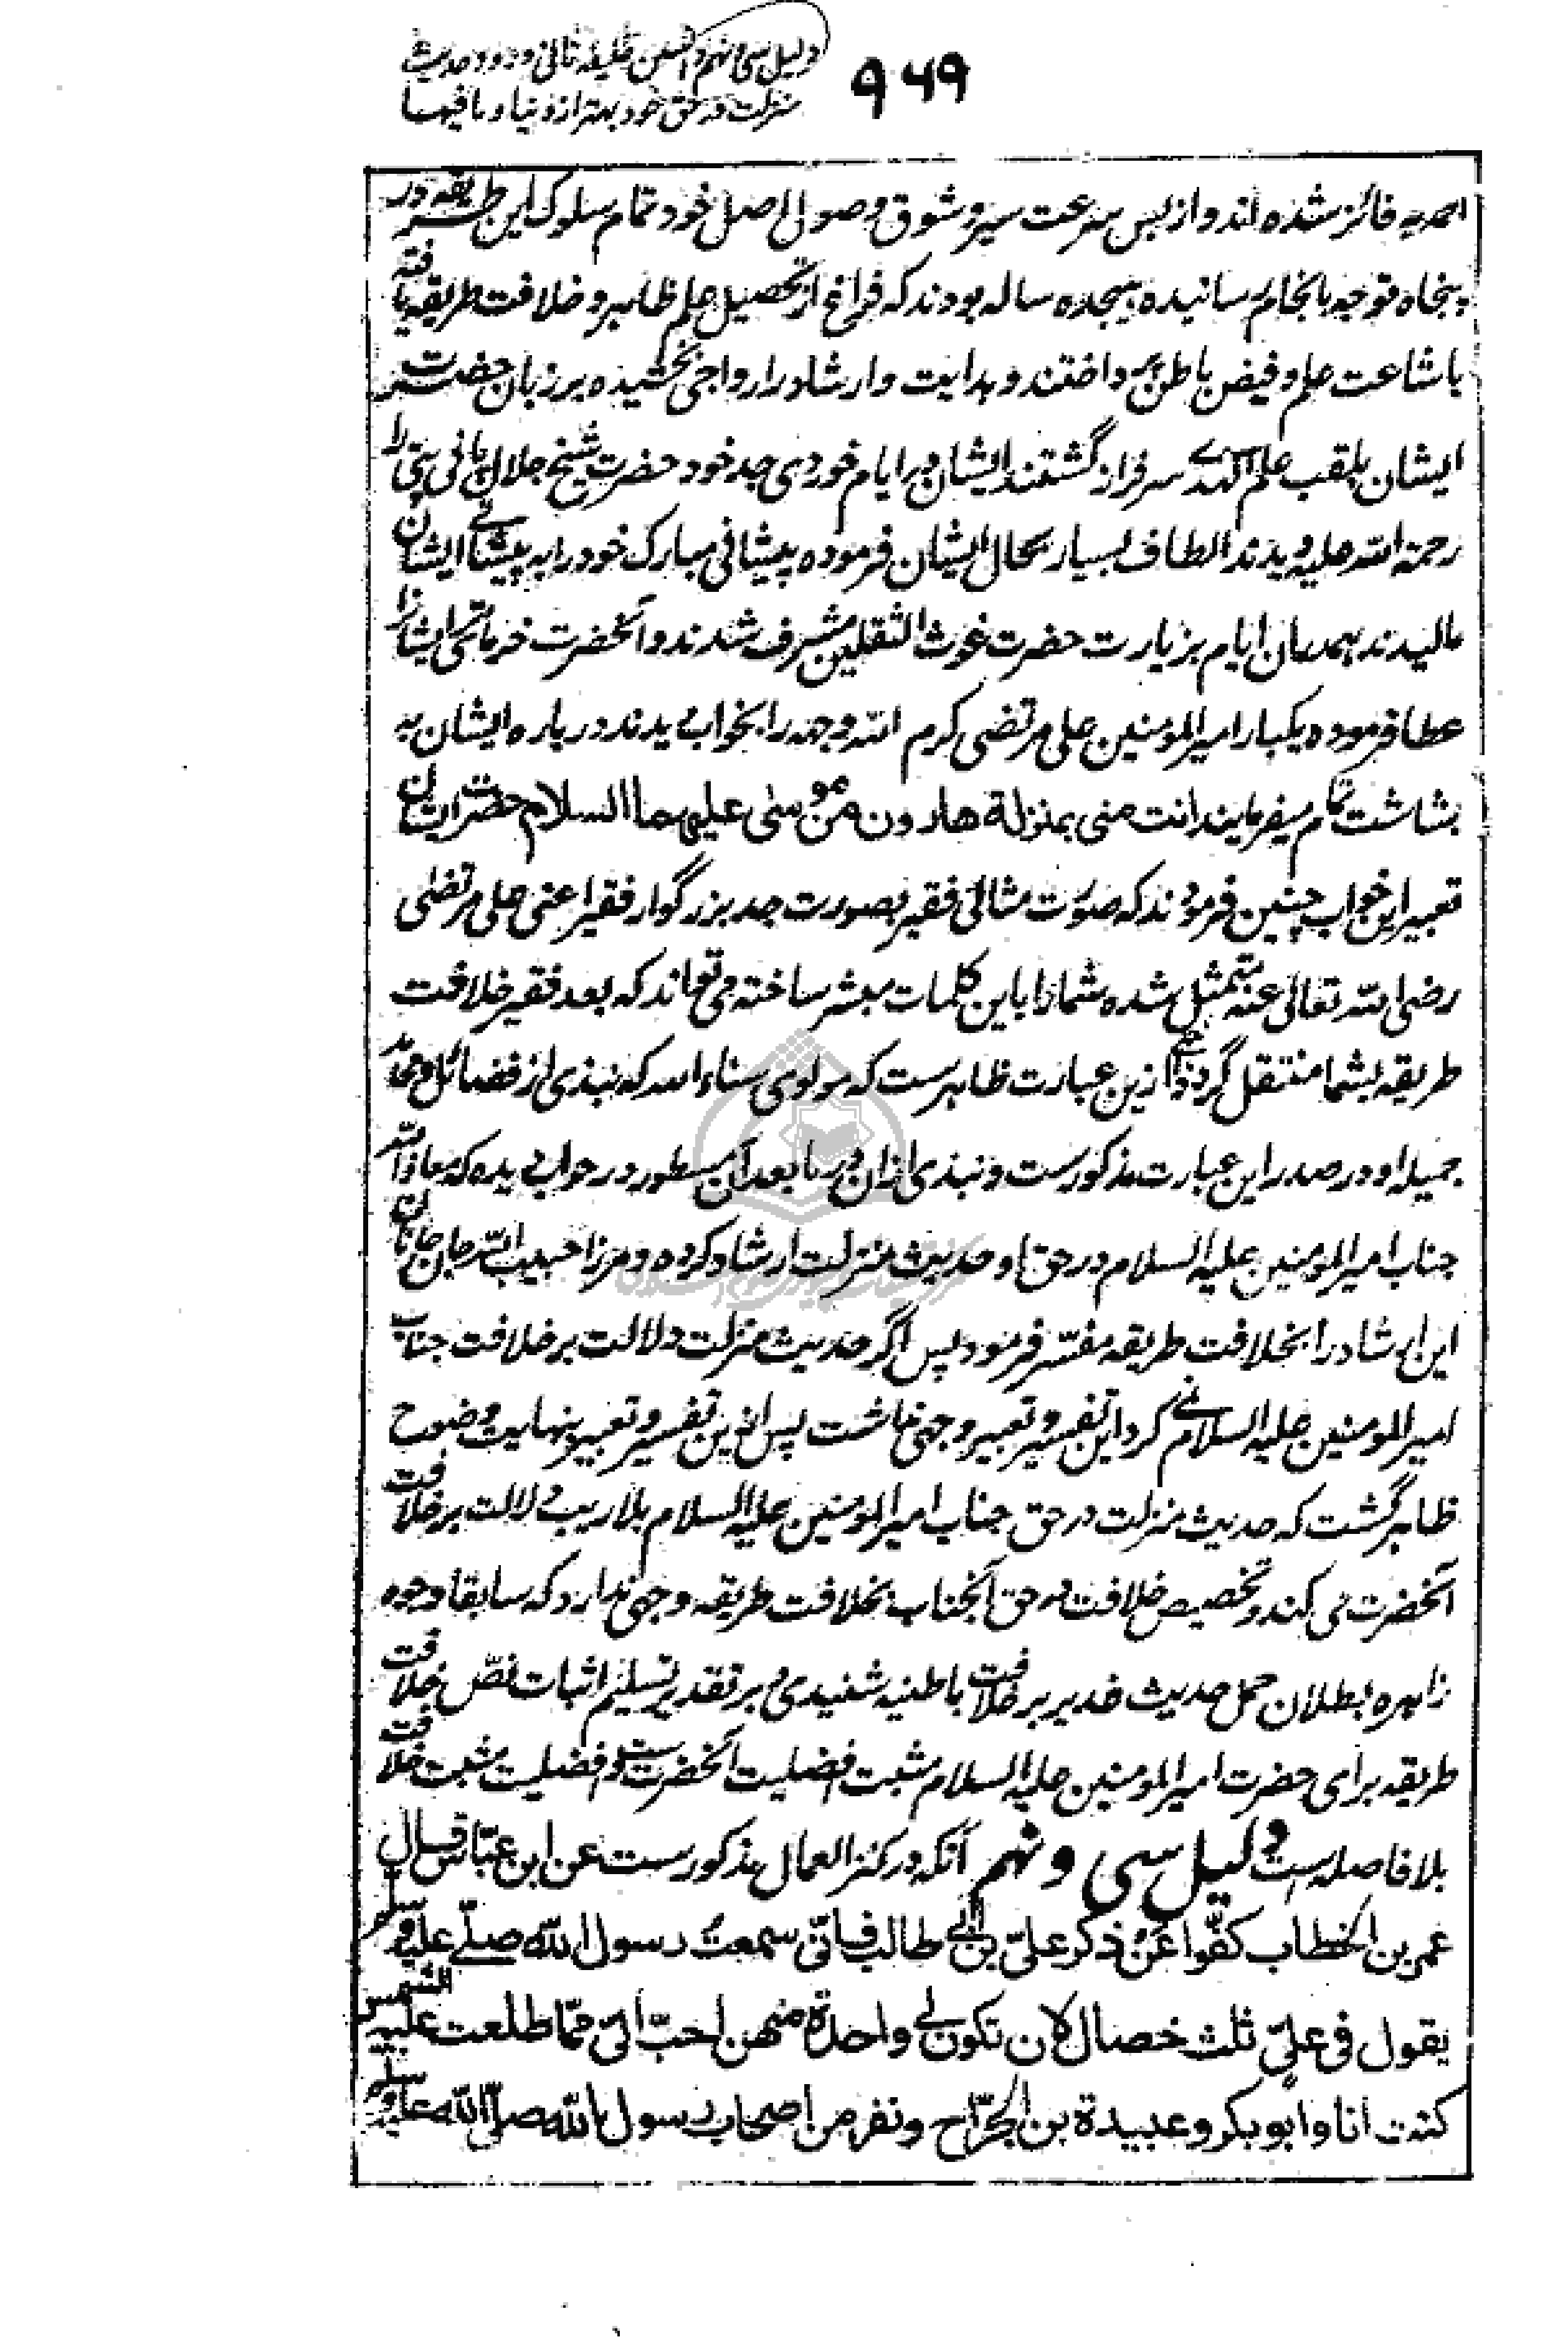 دلیل سی و نهم دانستن خلیفه ثانی ورود حدیث
منزلت در حق خود بهتر از دنیا و ما فیها
۹۶۹
احمدیه فائز شده اند و از بس سرعت سیر و شوق وصول اصل خود تمام سلوک این طریقه در
پنجاه توجه بانجام رسانیده هیجده ساله بودند که فراغ از تحصیل علم ظاهر و خلافت طریقه یافته
باشاعت علم و فیض باطن پرداختند و هدایت و ارشاد را رواجی بخشیده بر زبان حضرت
ایشان بلقب علم الهدی سرفراز گشتند ایشان در ایام خوردی جد خود حضرت شیخ جلال پانی پتی را
رحمة الله علیه دیدند الطاف بسیار بحال ایشان فرموده پیشانی مبارک خود را به پیشانی ایشان
مالیدند همدران ایام بزیارت حضرت غوث الثقلین مشرف شدند و آنحضرت خرمای ایشانرا
عطا فرموده یکبار امیر المومنین علی مرتضی کرم الله وجهه را بخواب دیدند در باره ایشان به
بشاشت تمام میفرمایند انت منی بمنزلة هارون من موسی علیهما السلام حضرت ایشان
تعبیر این خواب چنین فرمودند که صورت مثالی فقیر بصورت جد بزرگوار فقیر اعنی علی مرتضی
رضی الله تعالی عنه متمثل شده شما را باین کلمات مبشر ساخته می تواند که بعد فقیر خلافت
طریقه بشما منتقل گردد ازین عبارت ظاهرست که مولوی سناء الله که نبذی از فضائل و محامد
جمیله او در صدر این عبارت مذکورست و نبذی ازان در ما بعد آن مسطور در خواب دیده که معاذ الله
جناب امیر المومنین علیه السلام در حق او حدیث منزلت ارشاد کرده و مرزا حبیب الله جان جانان
این ارشاد را بخلافت طریقه مفسّر فرمود پس اگر حدیث منزلت دلالت بر خلافت جناب
امیر المومنین علیه السلام نمی کرد این تفسیر و تعبیر وجهی نداشت پس ازین تفسیر و تعبیر بنهایت وضوح
ظاهر گشت که حدیث منزلت در حق جناب امیر المومنین علیه السلام بلا ریب دلالت بر خلافت
آنحضرت می کند و تخصیص خلافت در حق آنجناب بخلافت طریقه وجهی ندارد که سابقا وجوه
زاهره بطلان حمل حدیث غدیر بر خلافت باطنیه شنیدی و بر تقدیر تسلیم اثبات نصّ خلافت
طریقه برای حضرت امیر المومنین علیه السلام مثبت افضلیت آنحضرت ست و افضلیت مثبت خلافت
بلا فاصله است دلیل سی و نهم آنکه در کنز العمال مذکورست عن ابن عبّاس قال
عمر بن الخطاب کفّوا عن ذکر علیّ بن ابی طالب فانّی سمعت رسول الله صلّی علیه و سلم
یقول فی علیّ ثلث خصال لان تکون لی واحدة منهن احبّ الیّ ممّا طلعت علیه الشمس
کنت انا و ابو بکر و عبیدة بن الجرّاح و نفر من اصحاب رسول الله صلّی الله علیه و سلم